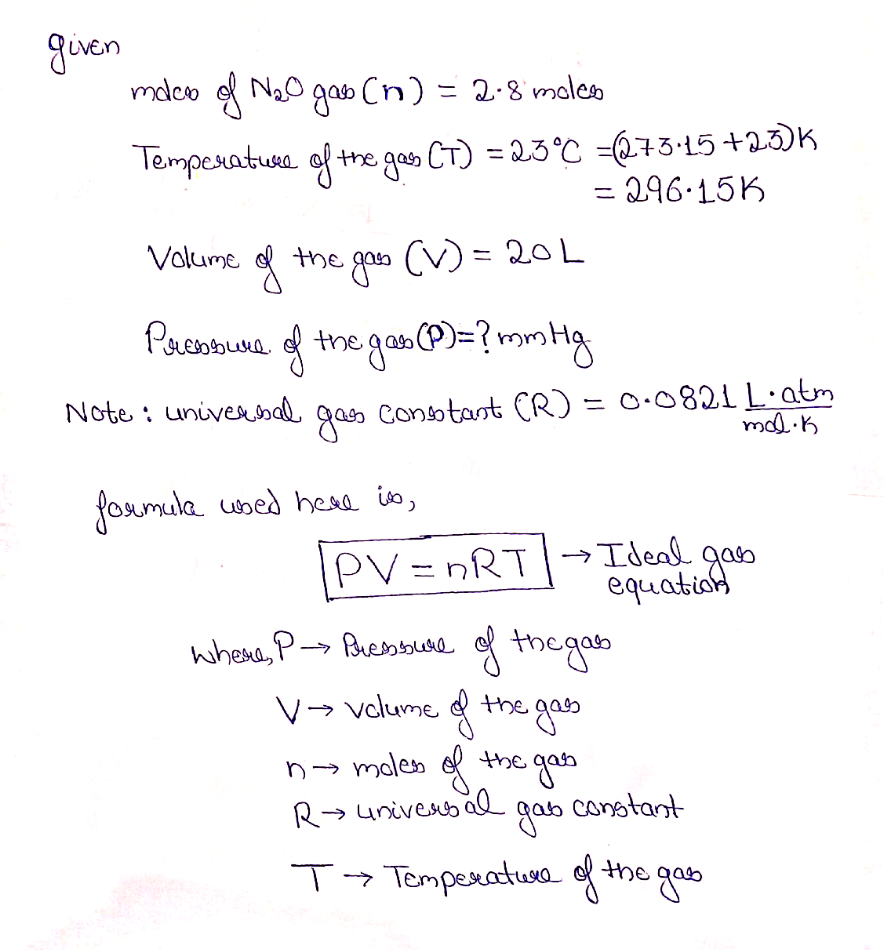 given
moles of N₂O gas (n) = 2.8 moles
Temperature of the gas (T) = 23°C = (273.15 + 23)K
= 296.15K
Volume of the gas (V) = 20 L
Pressure of the gas (P) = ? mmHg
Note : universal gas constant (R) = 0.0821 L·atm/mol·K
formula used here is,
PV = nRT → Ideal gas
equation
where, P → Pressure of the gas
V → volume of the gas
n → moles of the gas
R → universal gas constant
T → Temperature of the gas